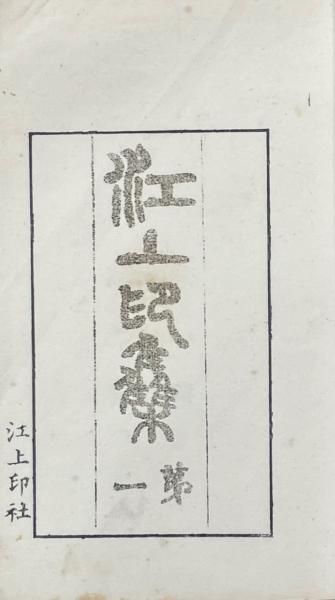 江上印集
第一
江上印社